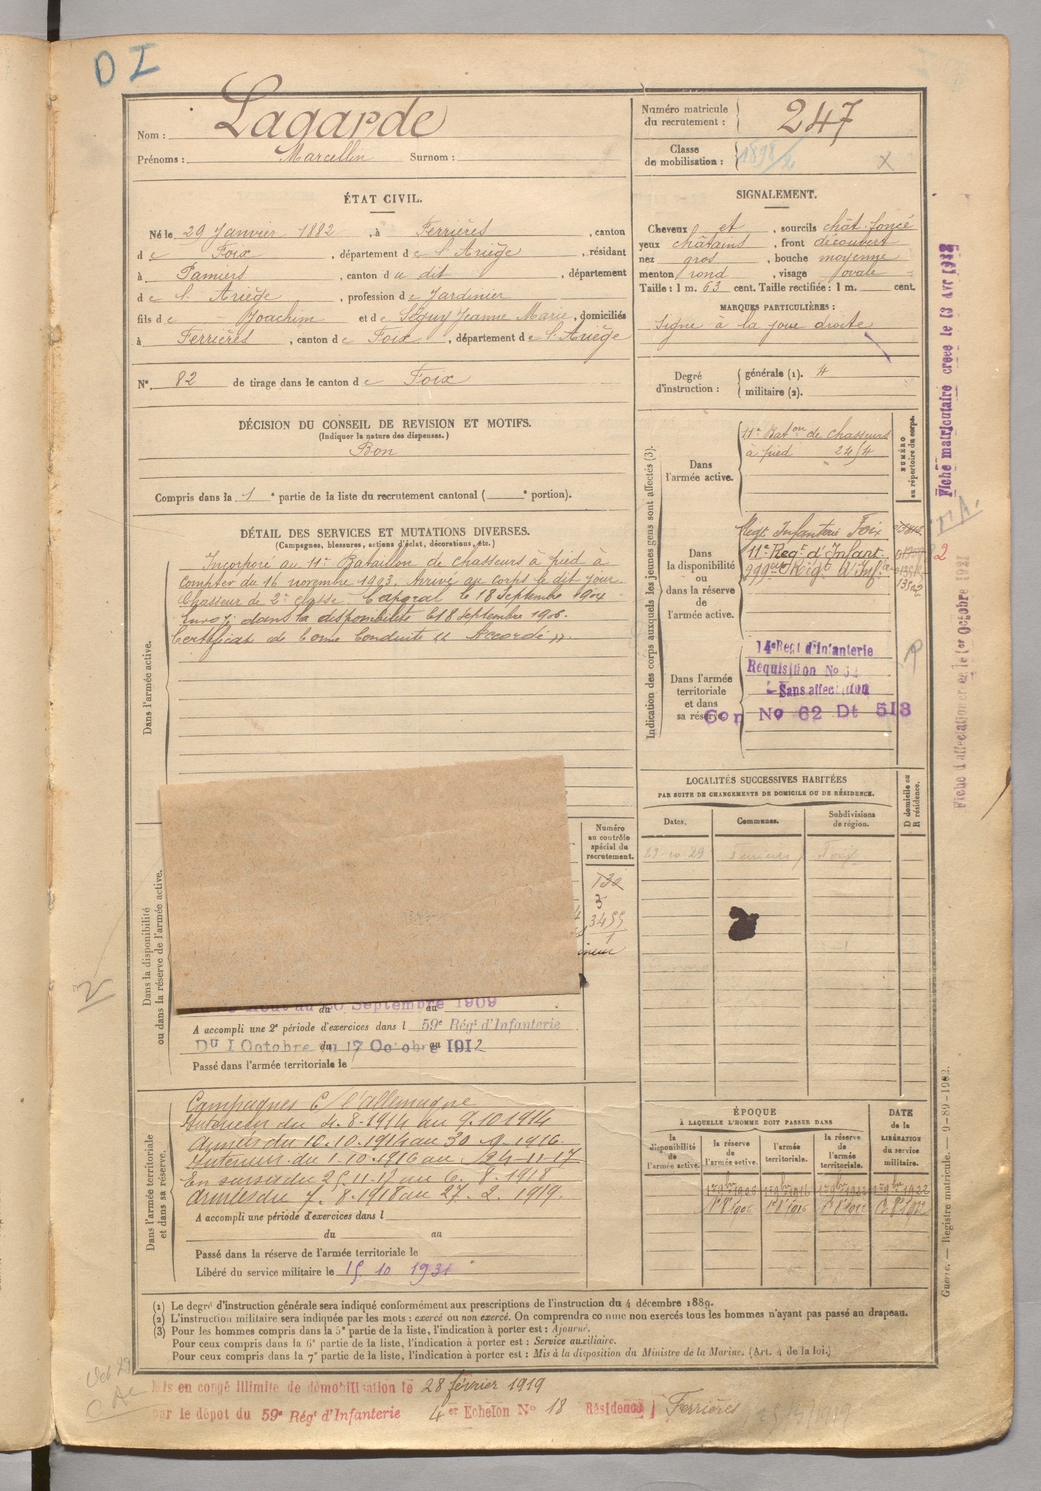 D I
Nom : Lagarde
Prénoms : Marcellin Surnom :
Numéro matricule du recrutement : 247
Classe de mobilisation : X
ÉTAT CIVIL.
Né le 29 Janvier 1882, à Ferrières, canton
de Foix, département de l'Ariège, résidant
à Pamiers, canton du dit, département
de l'Ariège, profession de Jardinier
fils de Joachim et de Séguy Jeanne Marie, domiciliés
à Ferrières, canton de Foix, département de l'Ariège
N° 82 de tirage dans le canton de Foix
SIGNALEMENT.
Cheveux et, sourcils chât. foncé
yeux châtains, front découvert
nez gros, bouche moyenne
menton rond, visage ovale
Taille : 1 m. 63 cent. Taille rectifiée : 1 m. cent.
MARQUES PARTICULIÈRES :
Signe à la joue droite
Degré d'instruction : générale (1). 4
militaire (2).
DÉCISION DU CONSEIL DE REVISION ET MOTIFS.
(Indiquer la nature des dispenses.)
Bon
Compris dans la 1e partie de la liste du recrutement cantonal ( e portion).
DÉTAIL DES SERVICES ET MUTATIONS DIVERSES.
(Campagnes, blessures, actions d'éclat, décorations, etc.)
Dans l'armée active.
Incorporé au 11e Bataillon de chasseurs à pied à
compter du 16 novembre 1903. Arrivé au corps le dit jour
Chasseur de 2e classe. Caporal le 18 Septembre 1904
dans la disponibilité le 18 Septembre 1906.
Certificat de bonne Conduite " Accordé ".
Indication des corps auxquels les jeunes gens sont affectés (3).
NUMÉRO au répertoire du corps.
Dans l'armée active.
11e Baton de Chasseurs
à pied
Dans la disponibilité ou dans la réserve de l'armée active.
Regt Infanterie Foix
11e Régt d'Infant.
Dans l'armée territoriale et dans sa réserve.
14e Regt d'Infanterie
Requisition No
Sans affectation
No 62 Dt 513
Fiche matriculaire créée le 13 Avr
Octobre
2
LOCALITÉS SUCCESSIVES HABITÉES
PAR SUITE DE CHANGEMENTS DE DOMICILE OU DE RÉSIDENCE.
Dates. Communes. Subdivisions de région. D domicile ou R résidence.
23-10-29
Dans la disponibilité ou dans la réserve de l'armée active.
Numéro au contrôle spécial du recrutement.
3
du Septembre 1909
A accompli une 2e période d'exercices dans l 59e Régt d'Infanterie
Du 1 Octobre au 17 Octobre 1912
Passé dans l'armée territoriale le
Dans l'armée territoriale et dans sa réserve.
Campagnes C/ l'Allemagne
Intérieur du 4.8.1914 au 9.10.1914
Armées du 10.10.1914 au 30.9.1916.
Intérieur du 1.10.1916 au 24-11-17
En sursis du 25.11.17 au 6.8.1918
Armées du 7.8.1918 au 27.2.1919.
A accompli une période d'exercices dans l
du au
Passé dans la réserve de l'armée territoriale le
Libéré du service militaire le
ÉPOQUE
À LAQUELLE L'HOMME DOIT PASSER DANS
la disponibilité de l'armée active. la réserve de l'armée active. l'armée territoriale. la réserve de l'armée territoriale.
DATE de la LIBÉRATION du service militaire.
Guerre. — Registre matricule. — 9-89-1902.
(1) Le degré d'instruction générale sera indiqué conformément aux prescriptions de l'instruction du 4 décembre 1889.
(2) L'instruction militaire sera indiquée par les mots : exercé ou non exercé. On comprendra comme non exercés tous les hommes n'ayant pas passé au drapeau.
(3) Pour les hommes compris dans la 5e partie de la liste, l'indication à porter est : Ajourné.
Pour ceux compris dans la 6e partie de la liste, l'indication à porter est : Service auxiliaire.
Pour ceux compris dans la 7e partie de la liste, l'indication à porter est : Mis à la disposition du Ministre de la Marine. (Art. 4 de la loi.)
Mis en congé illimité de démobilisation le 28 février 1919
par le dépot du 59e Régt d'Infanterie 4er Echelon No 18 Résidence Ferrières